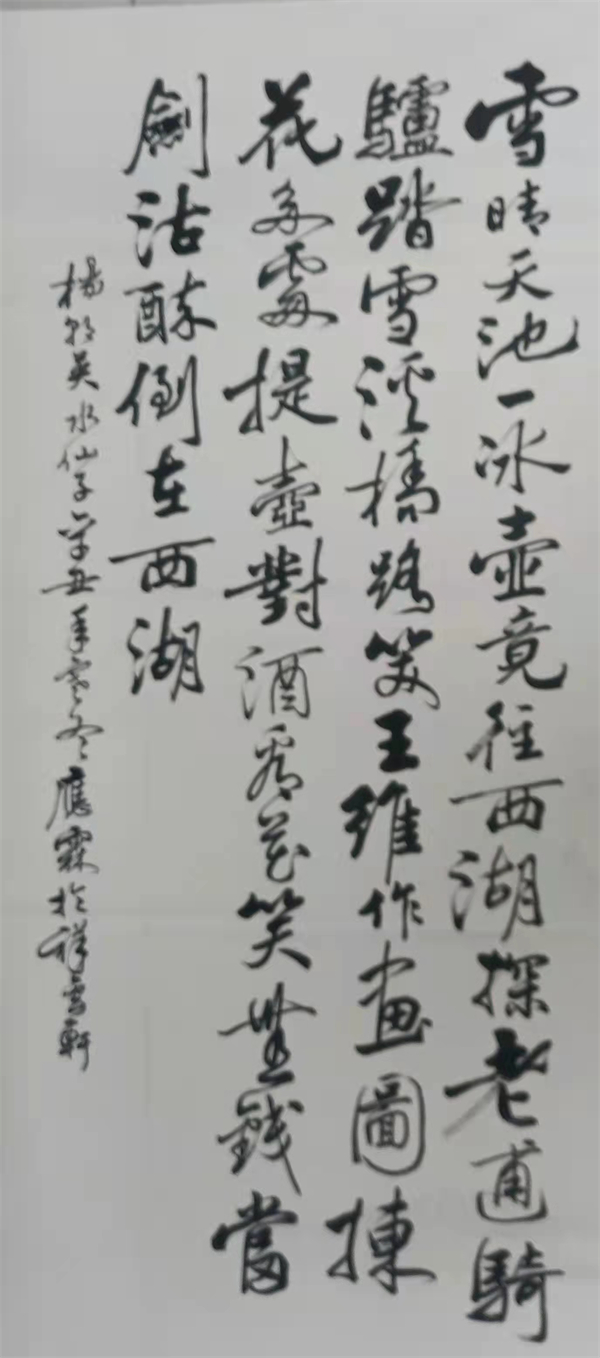 雪晴天池一冰壺竟往西湖探老逋騎
驢踏雪溪橋路笑王維作画圖揀
花多處提壺對酒看花笑無錢當
劍沽醉倒在西湖
楊朝英水仙子辛丑年寒冬應霖於祥雲軒